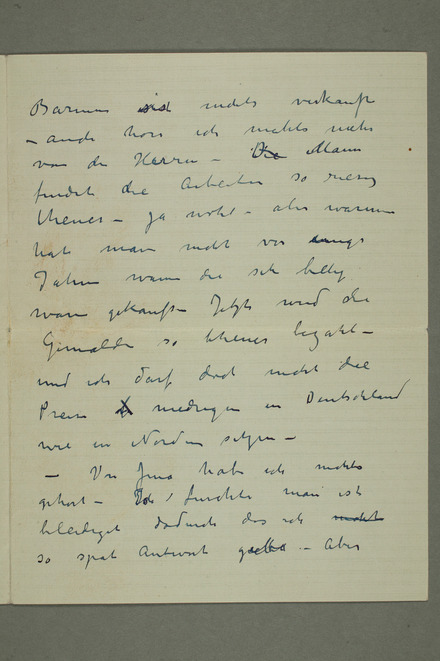 Barmen ist nichts verkauft
– auch hör ich nichts mehr
von den Herren – Die Mann
findet die Arbeiten so riesig
theuer – ja wohl – aber warum
hat man nicht vor
Jahren wann die sehr billig
waren gekauft – Jetzt wird die
Gemälde so theuer bezahlt –
und ich darf doch nicht die
Preise niedriger in Deutschland
wie in Norden setzen –
– Von Jena habe ich nichts
gehört – Ich fürchte man ist
bleidiget dadurch das ich nicht
so spät Antwort – Aber